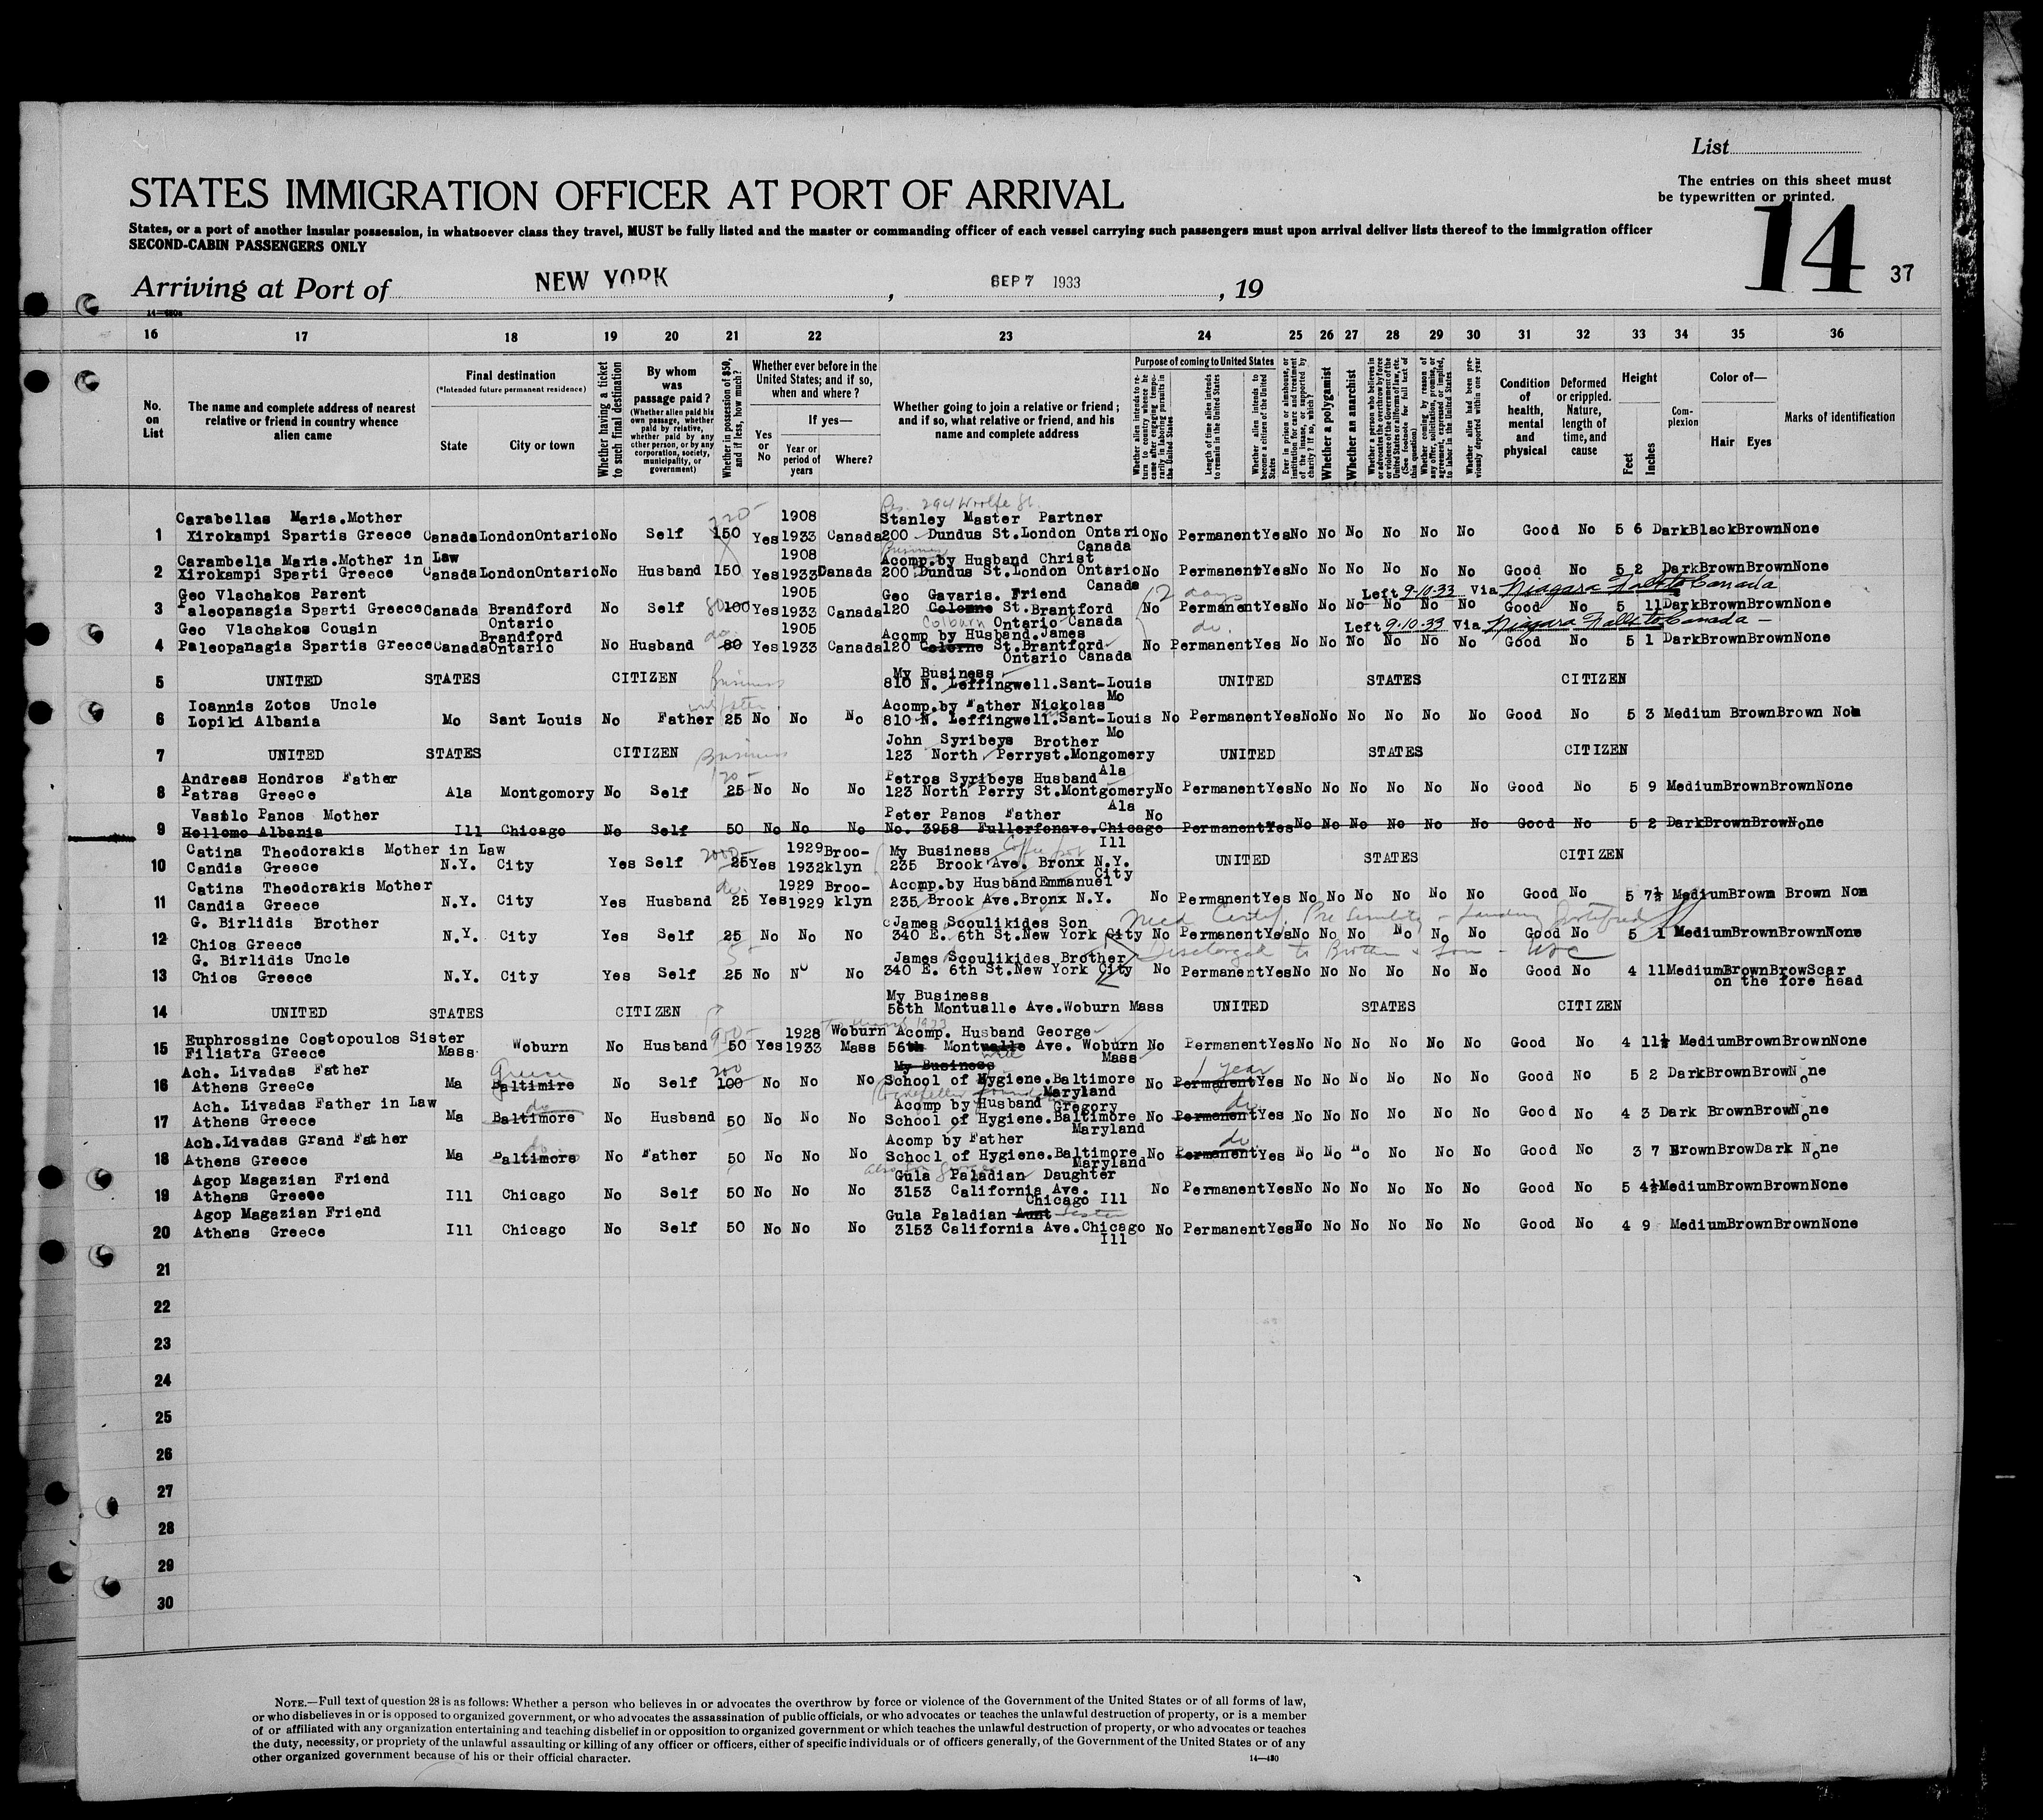 List
The entries on this sheet must
be typewritten or printed.
STATES IMMIGRATION OFFICER AT PORT OF ARRIVAL
States, or a port of another insular possession, in whatsoever class they travel, MUST be fully listed and the master or commanding officer of each vessel carrying such passengers must upon arrival deliver lists thereof to the immigration officer
SECOND-CABIN PASSENGERS ONLY
14
37
Arriving at Port of NEW YORK, SEP 7 1933, 19
16 17 18 19 20 21 22 23 24 25 26 27 28 29 30 31 32 33 34 35 36
No. on List
The name and complete address of nearest relative or friend in country whence alien came
Final destination
(*Intended future permanent residence)
State
City or town
Whether having a ticket to such final destination
By whom was passage paid?
(Whether alien paid his own passage, whether paid by relative, whether paid by any other person, or by any corporation, society, municipality, or government)
Whether in possession of $50, and if less, how much?
Whether ever before in the United States; and if so, when and where?
Yes or No
If yes—
Year or period of years
Where?
Whether going to join a relative or friend; and if so, what relative or friend, and his name and complete address
Purpose of coming to United States
Whether alien intends to return to country whence he came after engaging temporarily in laboring pursuits in the United States
Length of time alien intends to remain in the United States
Whether alien intends to become a citizen of the United States
Ever in prison or almshouse, or institution for care and treatment of the insane, or supported by charity? If so, which?
Whether a polygamist
Whether an anarchist
Whether a person who believes in or advocates the overthrow by force or violence of the Government of the United States or all forms of law, etc. (See footnote for full text of this question)
Whether coming by reason of any offer, solicitation, promise, or agreement, expressed or implied, to labor in the United States
Whether alien had been previously deported within one year
Condition of health, mental and physical
Deformed or crippled. Nature, length of time, and cause
Height
Feet
Inches
Complexion
Color of—
Hair
Eyes
Marks of identification
Res. 294 Woolfe St.
Carabellas Maria.Mother 1908 Stanley Master Partner
1 Xirokampi Spartis Greece Canada London Ontario No Self 150 Yes 1933 Canada 200 Dundus St.London Ontario No Permanent Yes No No No No No No Good No 5 6 Dark Black Brown None
Canada
Carambella Maria.Mother in Law 1908 Business Acomp.by Husband Christ
2 Xirokampi Sparti Greece Canada London Ontario No Husband 150 Yes 1933 Canada 200 Dundus St.London Ontario No Permanent Yes No No No No No No Good No 5 2 Dark Brown Brown None
Canada
Geo Vlachakos Parent 1905 Geo Gavaris. Friend 2 days Left 9-10-33 Via Niagara Falls to Canada
3 Paleopanagia Sparti Greece Canada Brandford No Self 80 100 Yes 1933 Canada 120 Colorne St.Brantford No Permanent Yes No No No No No No Good No 5 11 Dark Brown Brown None
Ontario Colburn Ontario Canada
Geo Vlachakos Cousin Brandford do. 1905 Acomp by Husband.James do. Left 9-10-33 Via Niagara Falls to Canada
4 Paleopanagia Spartis Greece Canada Ontario No Husband 80 Yes 1933 Canada 120 Colorne St.Brantford No Permanent Yes No No No No No No Good No 5 1 Dark Brown Brown None
Ontario Canada
My Business
5 UNITED STATES CITIZEN Business 810 N. Leffingwell.Sant-Louis UNITED STATES CITIZEN
Mo
Ioannis Zotos Uncle Acomp.by Father Nickolas
6 Lopiki Albania Mo Sant Louis No Father 25 No No No 810 N. Leffingwell.Sant-Louis No Permanent Yes No No No No No No Good No 5 3 Medium Brown Brown Non
Mo
John Syribeys Brother
7 UNITED STATES CITIZEN Business 123 North Perryst.Mongomery UNITED STATES CITIZEN
Ala
Andreas Hondros Father 120 Petros Syribeys Husband
8 Patras Greece Ala Montgomory No Self 25 No No No 123 North Perry St.Montgomery No Permanent Yes No No No No No No Good No 5 9 Medium Brown Brown None
Ala
Vasilo Panos Mother Peter Panos Father
9 Hellomo Albania Ill Chicago No Self 50 No No No No. 3958 Fullerfonave.Chicago No Permanent Yes No No No No No No Good No 5 2 Dark Brown Brow None
Ill
Catina Theodorakis Mother in Law 2000 1929 Broo- My Business Coffee pot
10 Candia Greece N.Y. City Yes Self 25 Yes 1932 klyn 235 Brook Ave. Bronx N.Y. UNITED STATES CITIZEN
City
Catina Theodorakis Mother do. 1929 Broo- Acomp.by Husband Emmanuel
11 Candia Greece N.Y. City Yes Husband 25 Yes 1929 klyn 235 Brook Ave.Bronx N.Y. No Permanent Yes No No No No No No Good No 5 7½ Medium Brown Brown Non
G. Birlidis Brother James Scoulikides Son Med. Certif.
12 Chios Greece N.Y. City Yes Self 25 No No No 340 E. 6th St.New York City No Permanent Yes No No No No No No Good No 5 1 Medium Brown Brown None
G. Birlidis Uncle James Scoulikides Brother Discharged to Brother & Son
13 Chios Greece N.Y. City Yes Self 25 No No No 340 E. 6th St.New York City No Permanent Yes No No No No No No Good No 4 11 Medium Brown Brow Scar
on the fore head
My Business
14 UNITED STATES CITIZEN 56th Montualle Ave.Woburn Mass UNITED STATES CITIZEN
Euphrossine Costopoulos Sister 1928 Woburn Acomp. Husband George
15 Filiatra Greece Mass Woburn No Husband 50 Yes 1933 Mass 56th Montwalle Ave. Woburn No Permanent Yes No No No No No No Good No 4 11½ Medium Brown Brown None
Mass
Ach. Livadas Father Greece 200 My Business 1 year
16 Athens Greece Ma Baltimire No Self 100 No No No School of Hygiene.Baltimore No Permanent Yes No No No No No No Good No 5 2 Dark Brown Brow None
Rockefeller Foundation Maryland
Ach. Livadas Father in Law do Acomp by Husband Gregory do.
17 Athens Greece Ma Baltimore No Husband 50 No No No School of Hygiene.Baltimore No Permanent Yes No No No No No No Good No 4 3 Dark Brown Brow None
Maryland
Ach.Livadas Grand Father do Acomp by Father do.
18 Athens Greece Ma Baltimore No Father 50 No No No School of Hygiene.Baltimore No Permanent Yes No No No No No No Good No 3 7 Brown Brow Dark None
Maryland
Agop Magazian Friend Gula Paladian Daughter
19 Athens Greece Ill Chicago No Self 50 No No No 3153 California Ave. No Permanent Yes No No No No No No Good No 5 4½ Medium Brown Brown None
Chicago Ill
Agop Magazian Friend Gula Paladian Aunt Sister
20 Athens Greece Ill Chicago No Self 50 No No No 3153 California Ave.Chicago No Permanent Yes No No No No No No Good No 4 9 Medium Brown Brown None
Ill
21
22
23
24
25
26
27
28
29
30
NOTE.—Full text of question 28 is as follows: Whether a person who believes in or advocates the overthrow by force or violence of the Government of the United States or of all forms of law,
or who disbelieves in or is opposed to organized government, or who advocates the assassination of public officials, or who advocates or teaches the unlawful destruction of property, or is a member
of or affiliated with any organization entertaining and teaching disbelief in or opposition to organized government or which teaches the unlawful destruction of property, or who advocates or teaches
the duty, necessity, or propriety of the unlawful assaulting or killing of any officer or officers, either of specific individuals or of officers generally, of the Government of the United States or of any
other organized government because of his or their official character.
14—430